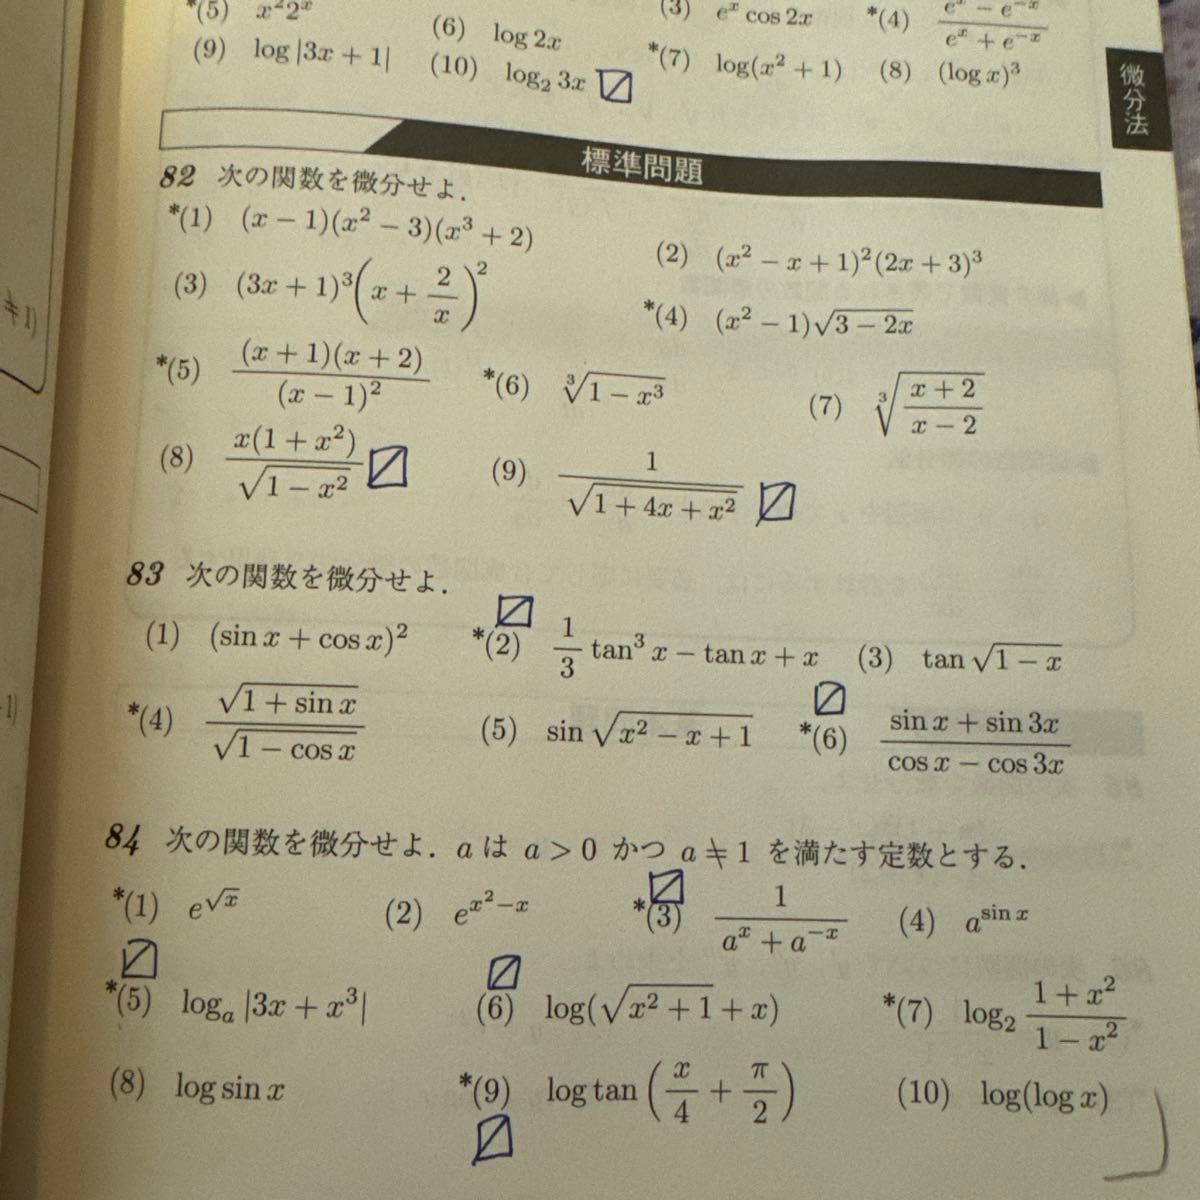 *(5) x²2ˣ (6) log 2x (3) eˣ cos 2x *(4) (eˣ − e⁻ˣ)/(eˣ + e⁻ˣ)
(9) log|3x + 1| (10) log₂ 3x *(7) log(x² + 1) (8) (log x)³
微分法
標準問題
82 次の関数を微分せよ.
*(1) (x − 1)(x² − 3)(x³ + 2) (2) (x² − x + 1)²(2x + 3)³
(3) (3x + 1)³(x + 2/x)² *(4) (x² − 1)√(3 − 2x)
*(5) (x + 1)(x + 2)/(x − 1)² *(6) ∛(1 − x³) (7) ∛((x + 2)/(x − 2))
(8) x(1 + x²)/√(1 − x²) (9) 1/√(1 + 4x + x²)
83 次の関数を微分せよ.
(1) (sin x + cos x)² *(2) 1/3 tan³ x − tan x + x (3) tan √(1 − x)
*(4) √(1 + sin x)/√(1 − cos x) (5) sin √(x² − x + 1) *(6) (sin x + sin 3x)/(cos x − cos 3x)
84 次の関数を微分せよ. a は a > 0 かつ a ≠ 1 を満たす定数とする.
*(1) e^√x (2) e^(x²−x) *(3) 1/(aˣ + a⁻ˣ) (4) a^(sin x)
*(5) logₐ|3x + x³| (6) log(√(x² + 1) + x) *(7) log₂ (1 + x²)/(1 − x²)
(8) log sin x *(9) log tan(x/4 + π/2) (10) log(log x)